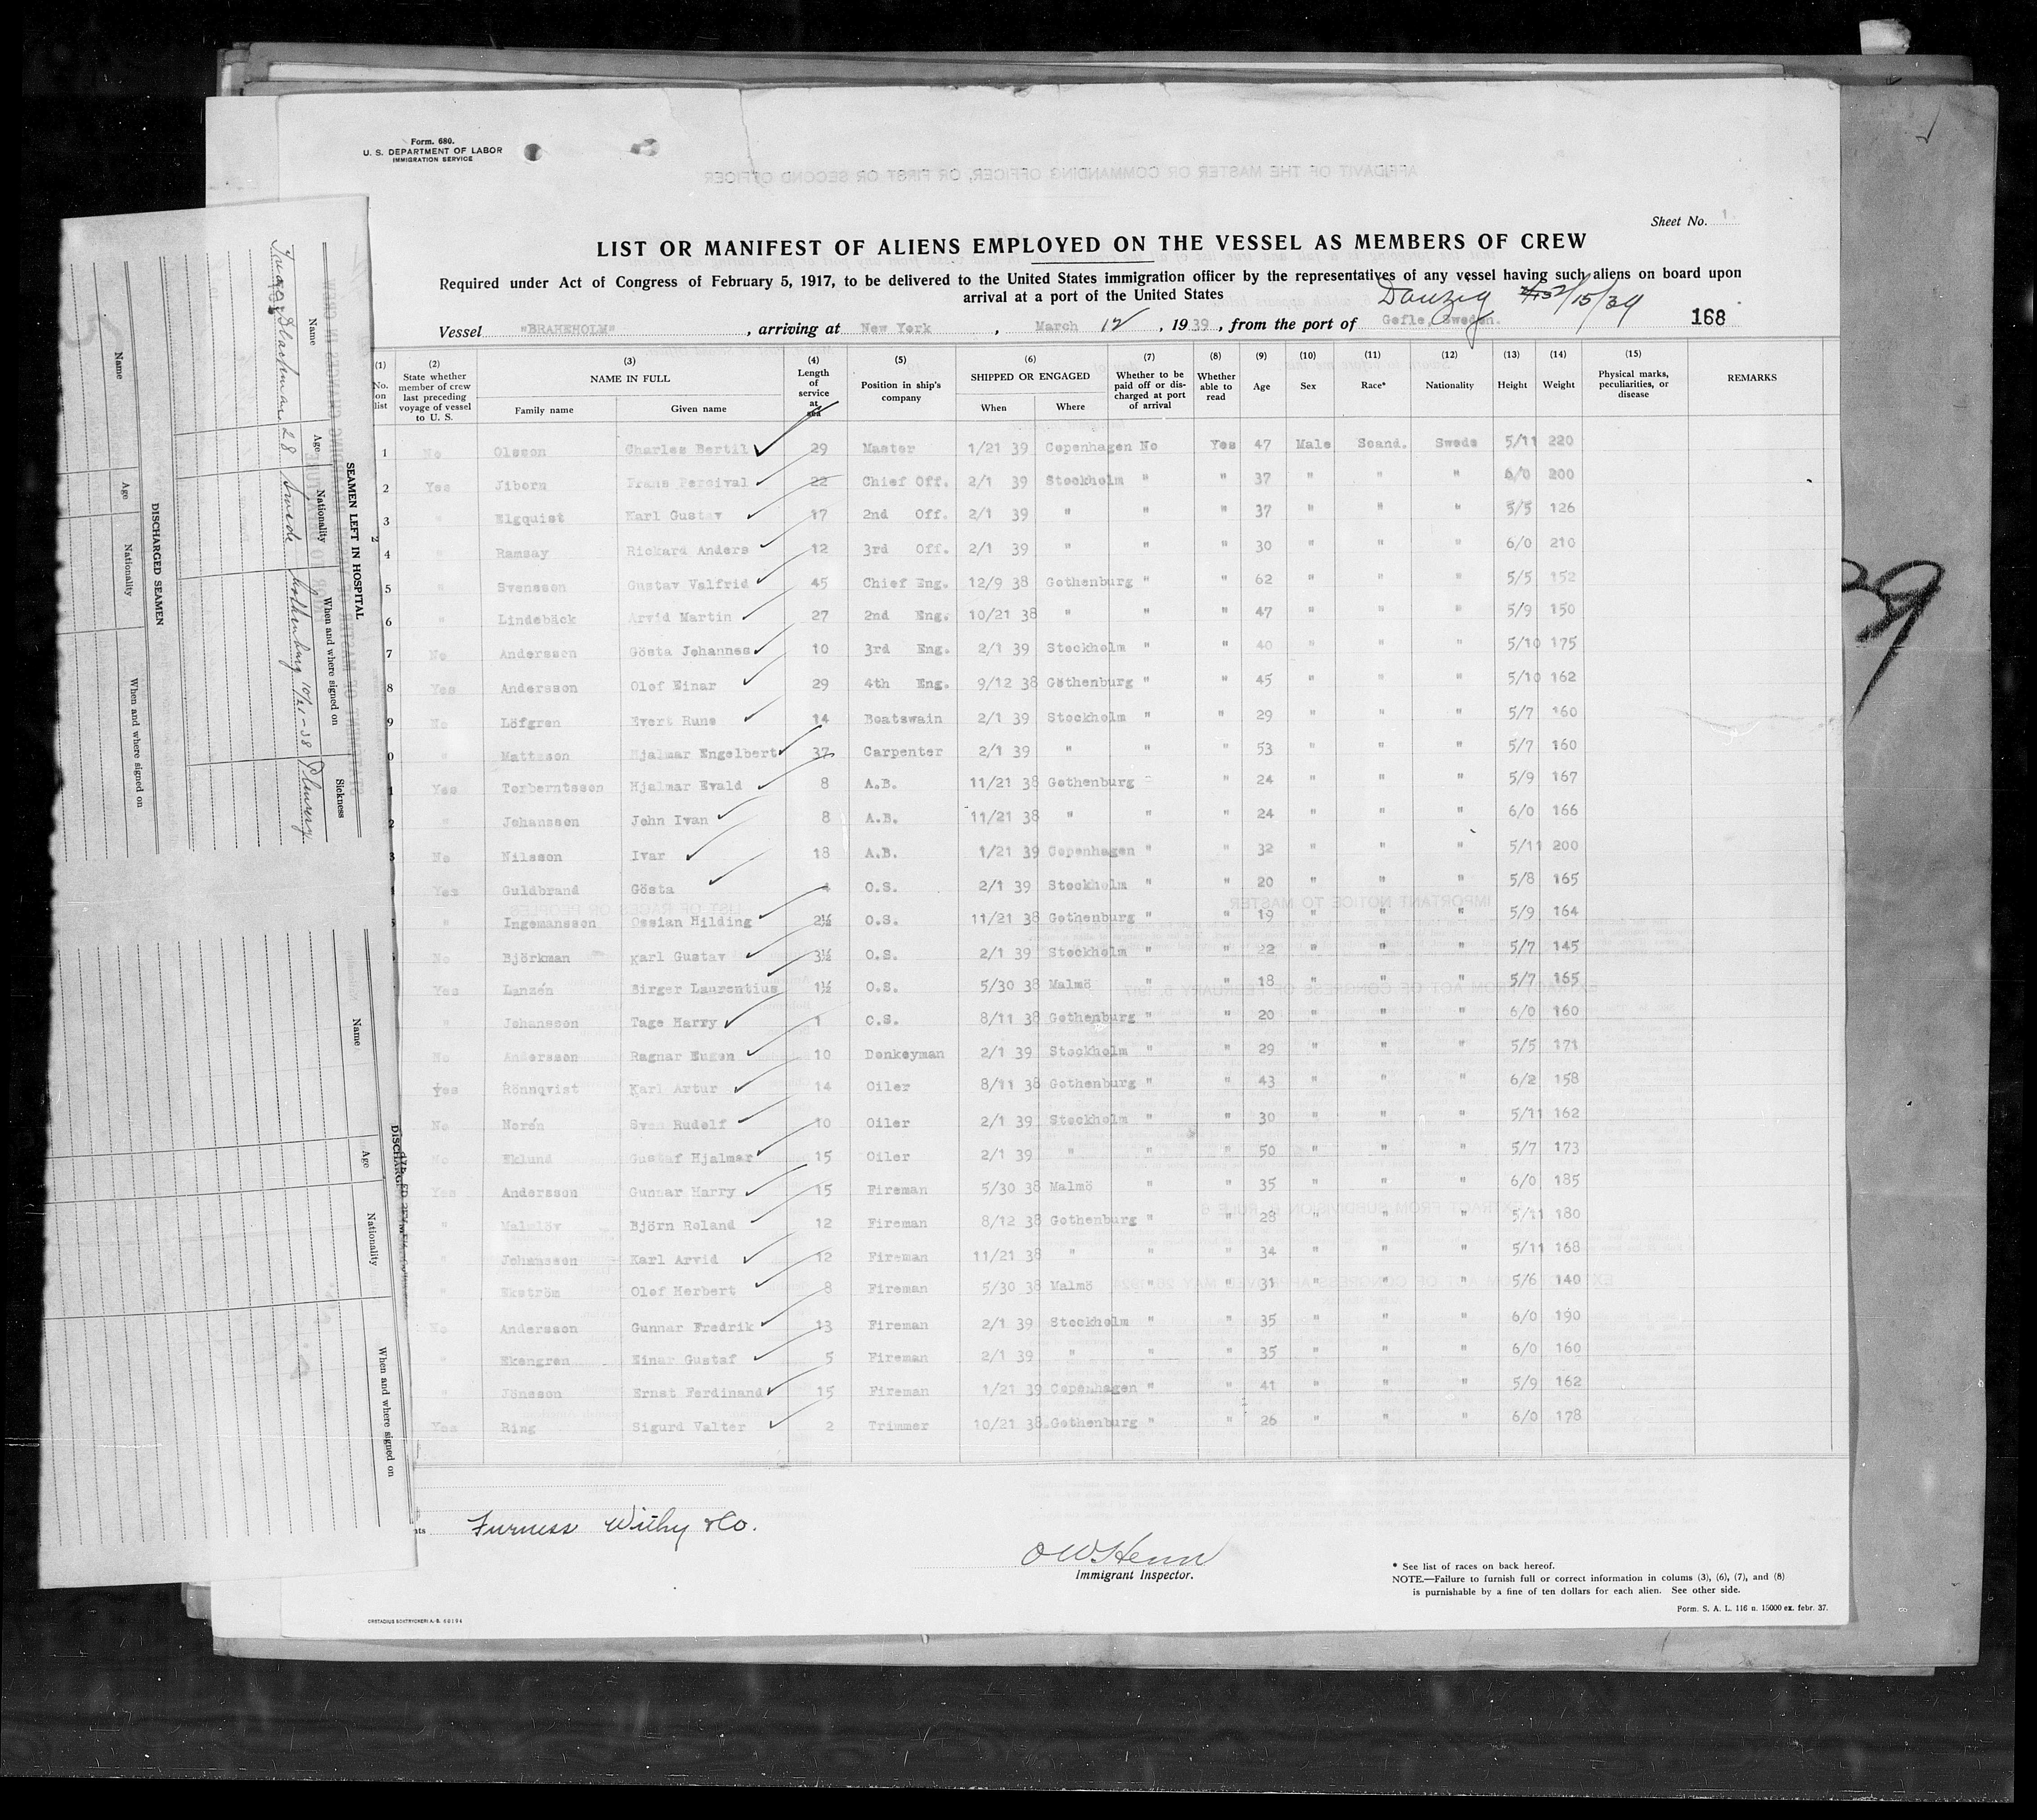 Form. 680.
U. S. DEPARTMENT OF LABOR
IMMIGRATION SERVICE
Sheet No. 1.
LIST OR MANIFEST OF ALIENS EMPLOYED ON THE VESSEL AS MEMBERS OF CREW
Required under Act of Congress of February 5, 1917, to be delivered to the United States immigration officer by the representatives of any vessel having such aliens on board upon
arrival at a port of the United States
Danzig 2/15/39
Vessel "BRAHEHOLM", arriving at New York, March 12, 1939, from the port of Gefle, Sweden. 168
(1) No. on list (2) State whether member of crew last preceding voyage of vessel to U. S. (3) NAME IN FULL Family name Given name (4) Length of service at sea (5) Position in ship's company (6) SHIPPED OR ENGAGED When Where (7) Whether to be paid off or discharged at port of arrival (8) Whether able to read (9) Age (10) Sex (11) Race* (12) Nationality (13) Height (14) Weight (15) Physical marks, peculiarities, or disease REMARKS
1 No Olsson Charles Bertil 29 Master 1/21 39 Copenhagen No Yes 47 Male Scand. Swede 5/11 220
2 Yes Jiborn Frans Percival 22 Chief Off. 2/1 39 Stockholm " " 37 " " " 6/0 200
3 " Elgquist Karl Gustav 17 2nd Off. 2/1 39 " " " 37 " " " 5/5 126
4 " Ramsay Rickard Anders 12 3rd Off. 2/1 39 " " " 30 " " " 6/0 210
5 " Svensson Gustav Valfrid 45 Chief Eng. 12/9 38 Gothenburg " " 62 " " " 5/5 152
6 " Lindebäck Arvid Martin 27 2nd Eng. 10/21 38 " " " 47 " " " 5/9 150
7 No Andersson Gösta Johannes 10 3rd Eng. 2/1 39 Stockholm " " 40 " " " 5/10 175
8 Yes Andersson Olof Einar 29 4th Eng. 9/12 38 Gothenburg " " 45 " " " 5/10 162
9 No Löfgren Evert Rune 14 Boatswain 2/1 39 Stockholm " " 29 " " " 5/7 160
0 " Mattsson Hjalmar Engelbert 37 Carpenter 2/1 39 " " " 53 " " " 5/7 160
1 Yes Torberntsson Hjalmar Evald 8 A.B. 11/21 38 Gothenburg " " 24 " " " 5/9 167
2 " Johansson John Ivan 8 A.B. 11/21 38 " " " 24 " " " 6/0 166
3 No Nilsson Ivar 18 A.B. 1/21 39 Copenhagen " " 32 " " " 5/11 200
Yes Guldbrand Gösta 4 O.S. 2/1 39 Stockholm " " 20 " " " 5/8 165
" Ingemansson Ossian Hilding 2½ O.S. 11/21 38 Gothenburg " " 19 " " " 5/9 164
No Björkman Karl Gustav 3½ O.S. 2/1 39 Stockholm " " 22 " " " 5/7 145
Yes Lanzén Birger Laurentius 1½ O.S. 5/30 38 Malmö " " 18 " " " 5/7 165
" Johansson Tage Harry 1 O.S. 8/11 38 Gothenburg " " 20 " " " 6/0 160
No Andersson Ragnar Eugen 10 Donkeyman 2/1 39 Stockholm " " 29 " " " 5/5 171
Yes Rönnqvist Karl Artur 14 Oiler 8/11 38 Gothenburg " " 43 " " " 6/2 158
No Norén Sven Rudolf 10 Oiler 2/1 39 Stockholm " " 30 " " " 5/11 162
No Eklund Gustaf Hjalmar 15 Oiler 2/1 39 " " " 50 " " " 5/7 173
Yes Andersson Gunnar Harry 15 Fireman 5/30 38 Malmö " " 35 " " " 6/0 185
" Malmlöv Björn Roland 12 Fireman 8/12 38 Gothenburg " " 28 " " " 5/11 180
" Johansson Karl Arvid 12 Fireman 11/21 38 " " " 34 " " " 5/11 168
" Ekström Olof Herbert 8 Fireman 5/30 38 Malmö " " 31 " " " 5/6 140
No Andersson Gunnar Fredrik 13 Fireman 2/1 39 Stockholm " " 35 " " " 6/0 190
" Ekengren Einar Gustaf 5 Fireman 2/1 39 " " " 35 " " " 6/0 160
" Jönsson Ernst Ferdinand 15 Fireman 1/21 39 Copenhagen " " 41 " " " 5/9 162
Yes Ring Sigurd Valter 2 Trimmer 10/21 38 Gothenburg " " 26 " " " 6/0 178
Furness Withy & Co.
O W Henn
Immigrant Inspector.
* See list of races on back hereof.
NOTE.—Failure to furnish full or correct information in colums (3), (6), (7), and (8)
is punishable by a fine of ten dollars for each alien. See other side.
Form. S. A. L. 116 u. 15000 ex. febr. 37.
SEAMEN LEFT IN HOSPITAL
Name Age Nationality When and where signed on Sickness
28 Swede Gothenburg 10/21-38 Pleurery
DISCHARGED SEAMEN
Name Age Nationality When and where signed on
Name Age Nationality When and where signed on
39